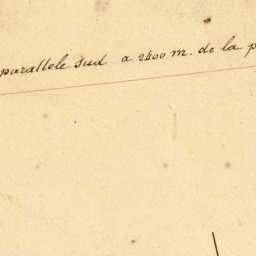 parallele sud a 2400 m. de la p